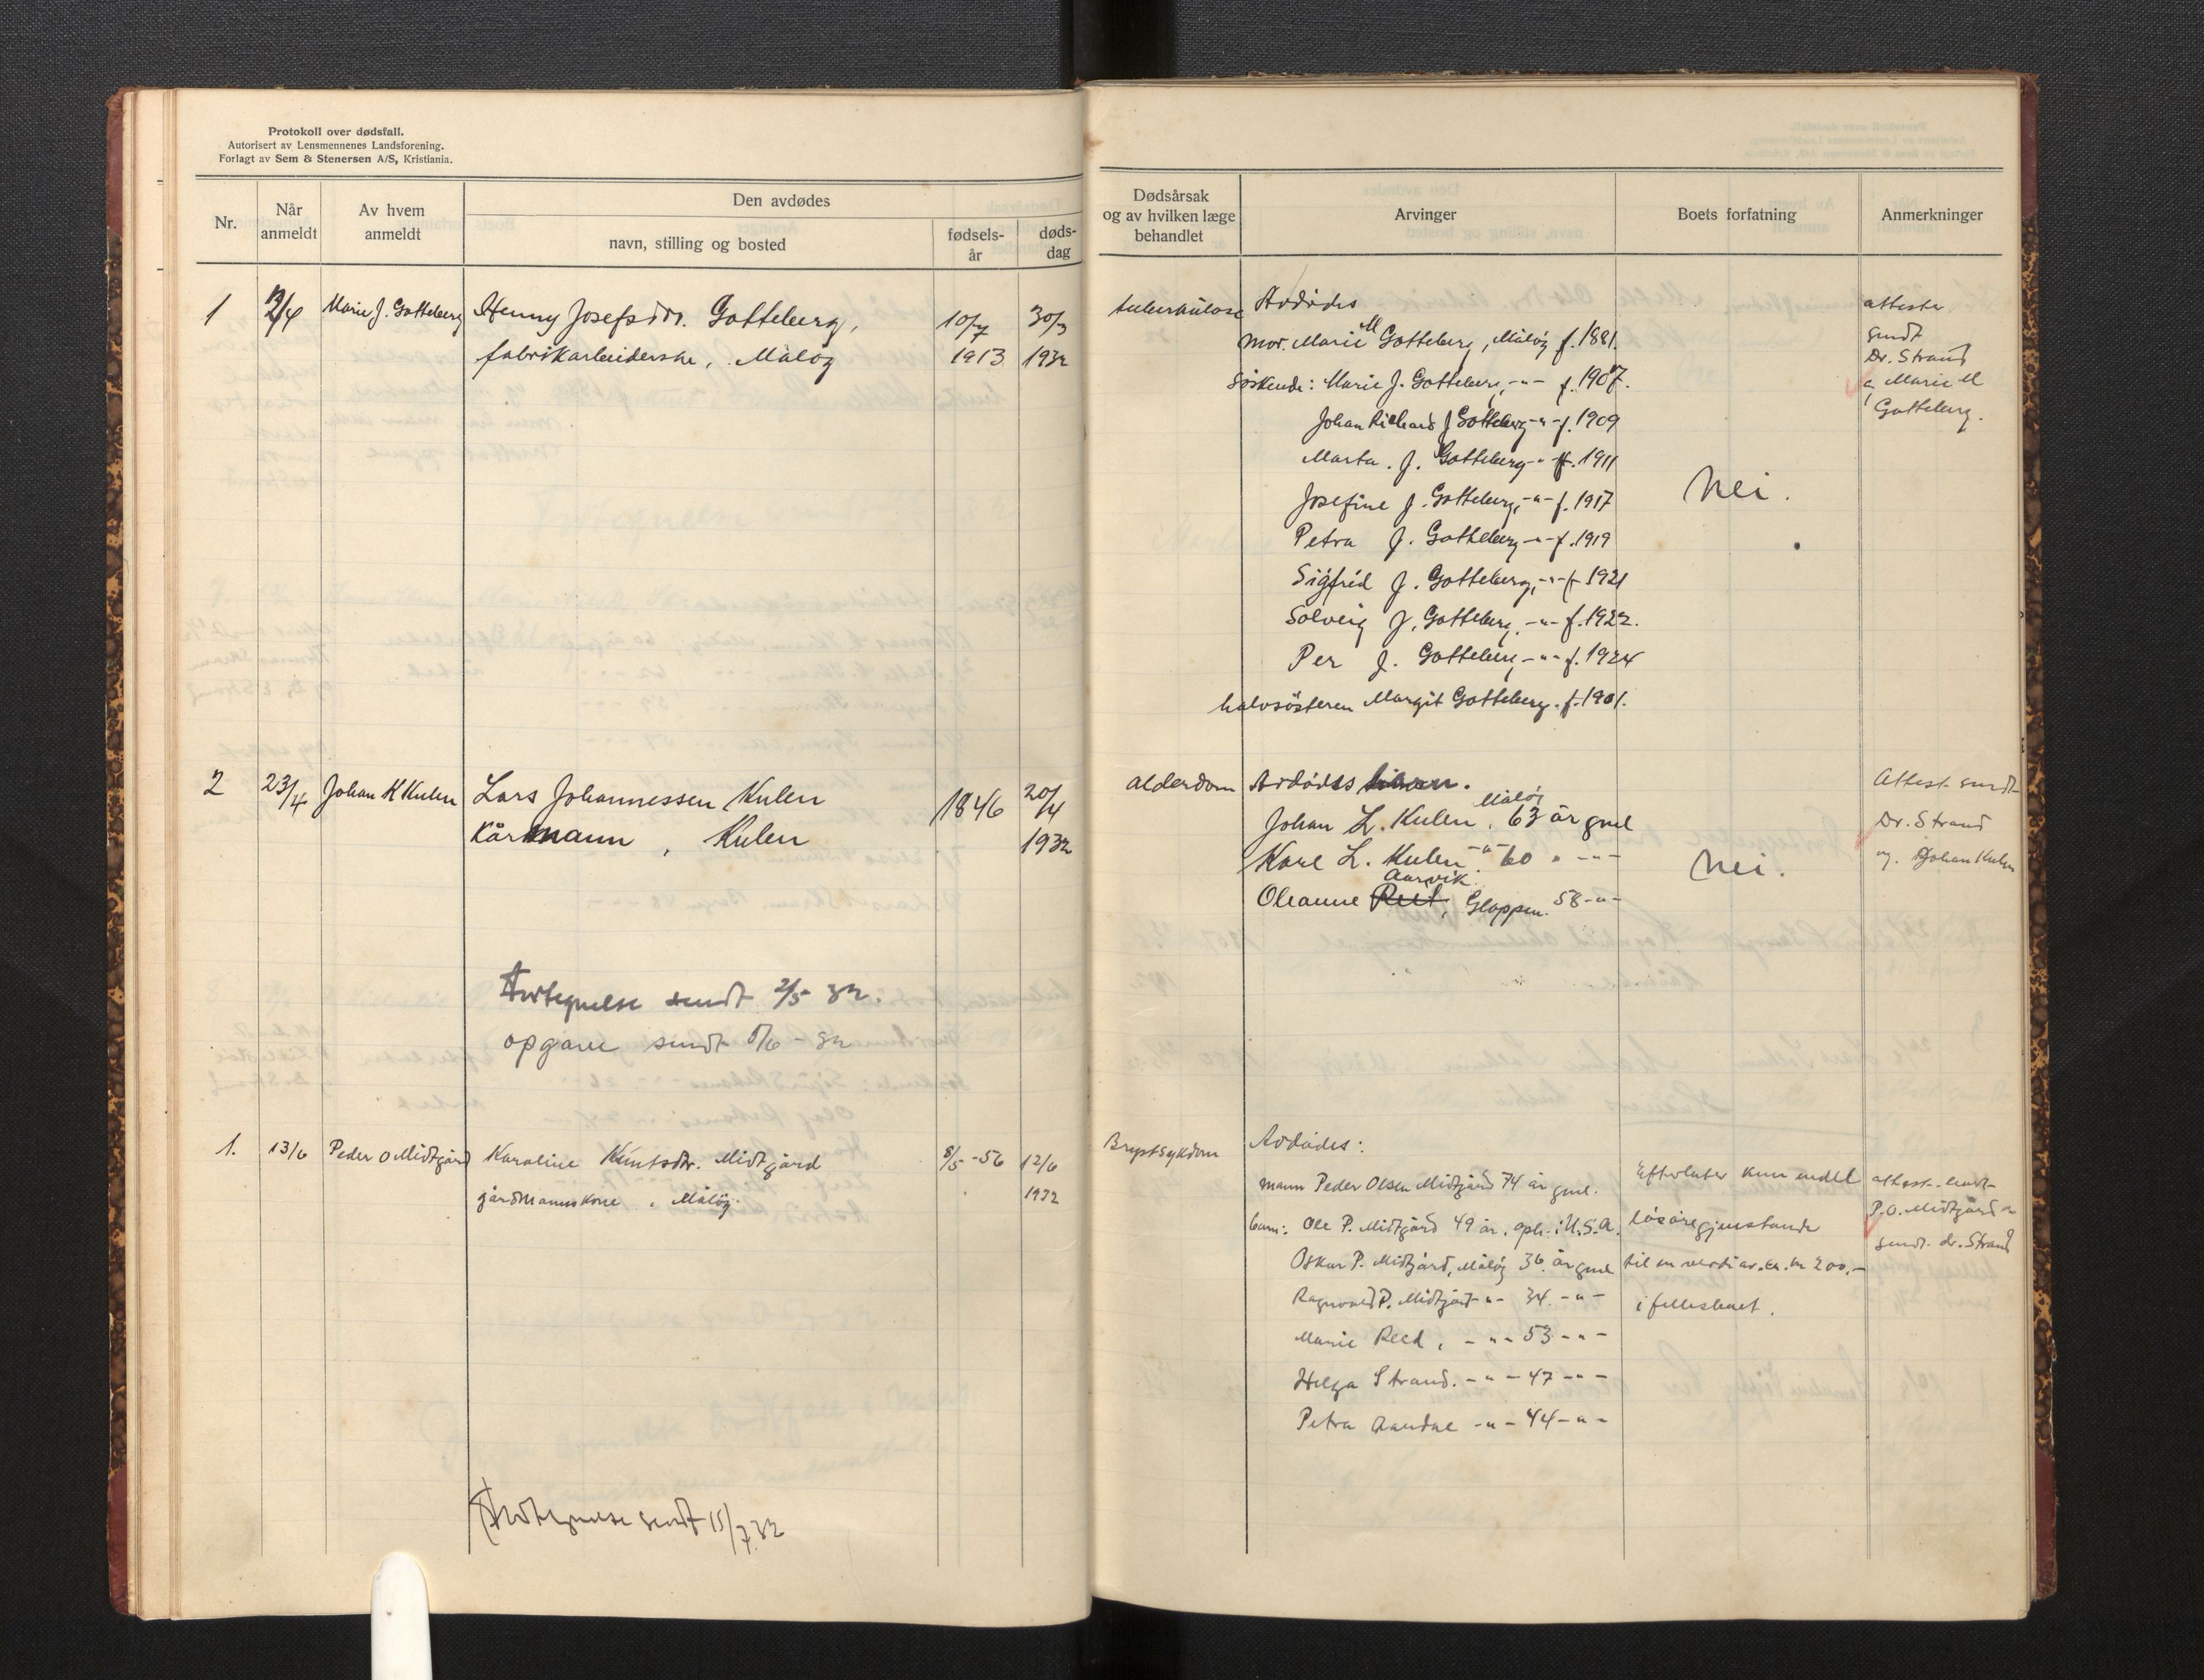 Protokoll over dødsfall.
Autorisert av Lensmennenes Landsforening.
Forlagt av Sem & Stenersen A/S, Kristiania.
Nr.
Når anmeldt
Av hvem anmeldt
Den avdødes
navn, stilling og bosted
fødselsår
dødsdag
Dødsårsak
og av hvilken læge
behandlet
Arvinger
Boets forfatning
Anmerkninger
1 2/4 Marie J. Gotteberg Henny Josefsdtr. Gotteberg, 10/7 30/3
fabrikarbeiderske, Måløy 1913 1932
tuberkulose
Avdødes
mor. Marie M Gotteberg, Måløy f. 1881.
Søskende: Marie J. Gotteberg, -"- f. 1907.
Johan Richard J Gotteberg -"- f. 1909
Marta. J. Gotteberg -"- f. 1911
Josefine J. Gotteberg, -"- f. 1917
Petra J. Gotteberg -"- f. 1919
Sigfrid J. Gotteberg, -"- f. 1921
Solveig J. Gotteberg, -"- f. 1922.
Per J. Gotteberg, -"- f. 1924
halvsösteren Margit Gotteberg. f. 1901.
Nei.
attester
sendt
Dr. Strand
Marie M
Gotteberg.
2 23/4 Johan K Kulen Lars Johannessen Kulen 1846 20/4
Kårmann, Kulen 1932
alderdom
Avdødes
Måløy
Johan L. Kulen, 63 år gml
Karl L. Kulen -"- 60 " -"-
Aarvik
Oleanne Reed, Gloppen. 58 -"-
Nei.
Attest sendt
Dr. Strand
og Johan Kulen
Fortegnelse sendt 2/5 32.
opgave sendt /6 - 32
1. 13/6 Peder O Midtgård Karoline Knutsdtr. Midtgård 8/5 -56 12/6
gårdmannskone, Måløy. 1932
Brystsykdom
Avdødes:
mann Peder Olsen Midtgård 74 år gml.
barn: Ole P. Midtgård 49 år. oph. i U.S.A.
Oskar P. Midtgård, Måløy 36 år gml
Ragnvald P. Midtgård -"- 34. -"-
Marie Reed, -"- 53 -"-
Helga Strand. -"- 47 -"-
Petra Aandal -"- 44 -"-
Efterlater kun endel
løsøregjenstande
til en verdi av ca. kr 200,-
i fellesboet.
attest sendt
P.O. Midtgård
sendt dr. Strand
Fortegnelse sendt 15/7 32